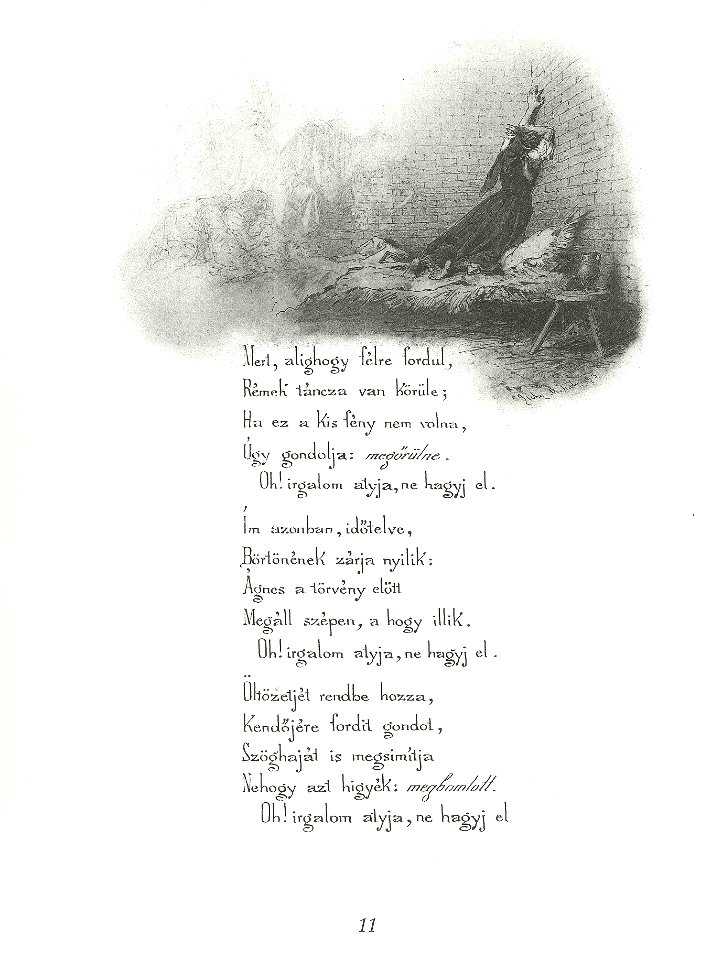 Mert, alighogy félre fordul,
Rémek táncza van körüle;
Ha ez a kis fény nem volna,
Úgy gondolja: megőrülne.
Oh! irgalom atyja, ne hagyj el.
Ím azonban, időtelve,
Börtönének zárja nyilik:
Ágnes a törvény előtt
Megáll szépen, a hogy illik.
Oh! irgalom atyja, ne hagyj el.
Öltözetjét rendbe hozza,
Kendőjére fordit gondot,
Szöghaját is megsimítja
Nehogy azt higyék: megbomlott.
Oh! irgalom atyja, ne hagyj el
11